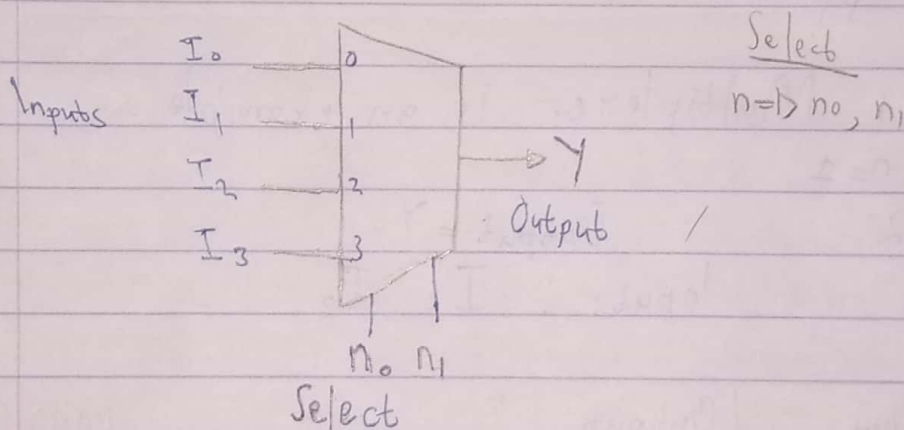 Select
n=> n₀, n₁
I₀ 0
Inputs I₁ 1
I₂ 2
I₃ 3
Y
Output
n₀ n₁
Select